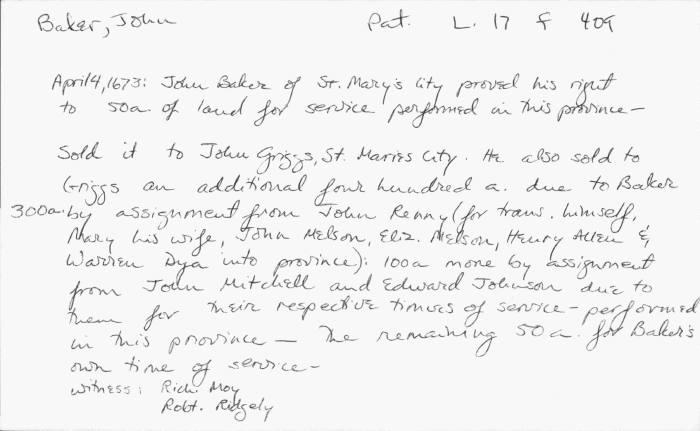 Baker, John Pat. L. 17 f 409
April 4, 1673: John Baker of St. Mary's City proved his right
to 50a. of land for service performed in this province —
Sold it to John Griggs, St. Maries City. He also sold to
Griggs an additional four hundred a. due to Baker
300a. by assignment from John Renny (for trans. himself,
Mary his wife, John Nelson, Eliz. Nelson, Henry Allen &
Warren Dya into province): 100a more by assignment
from John Mitchell and Edward Johnson due to
them for their respective times of service - performed
in this province — The remaining 50a. for Baker's
own time of service -
witness: Rich. Moy
Robt. Ridgely